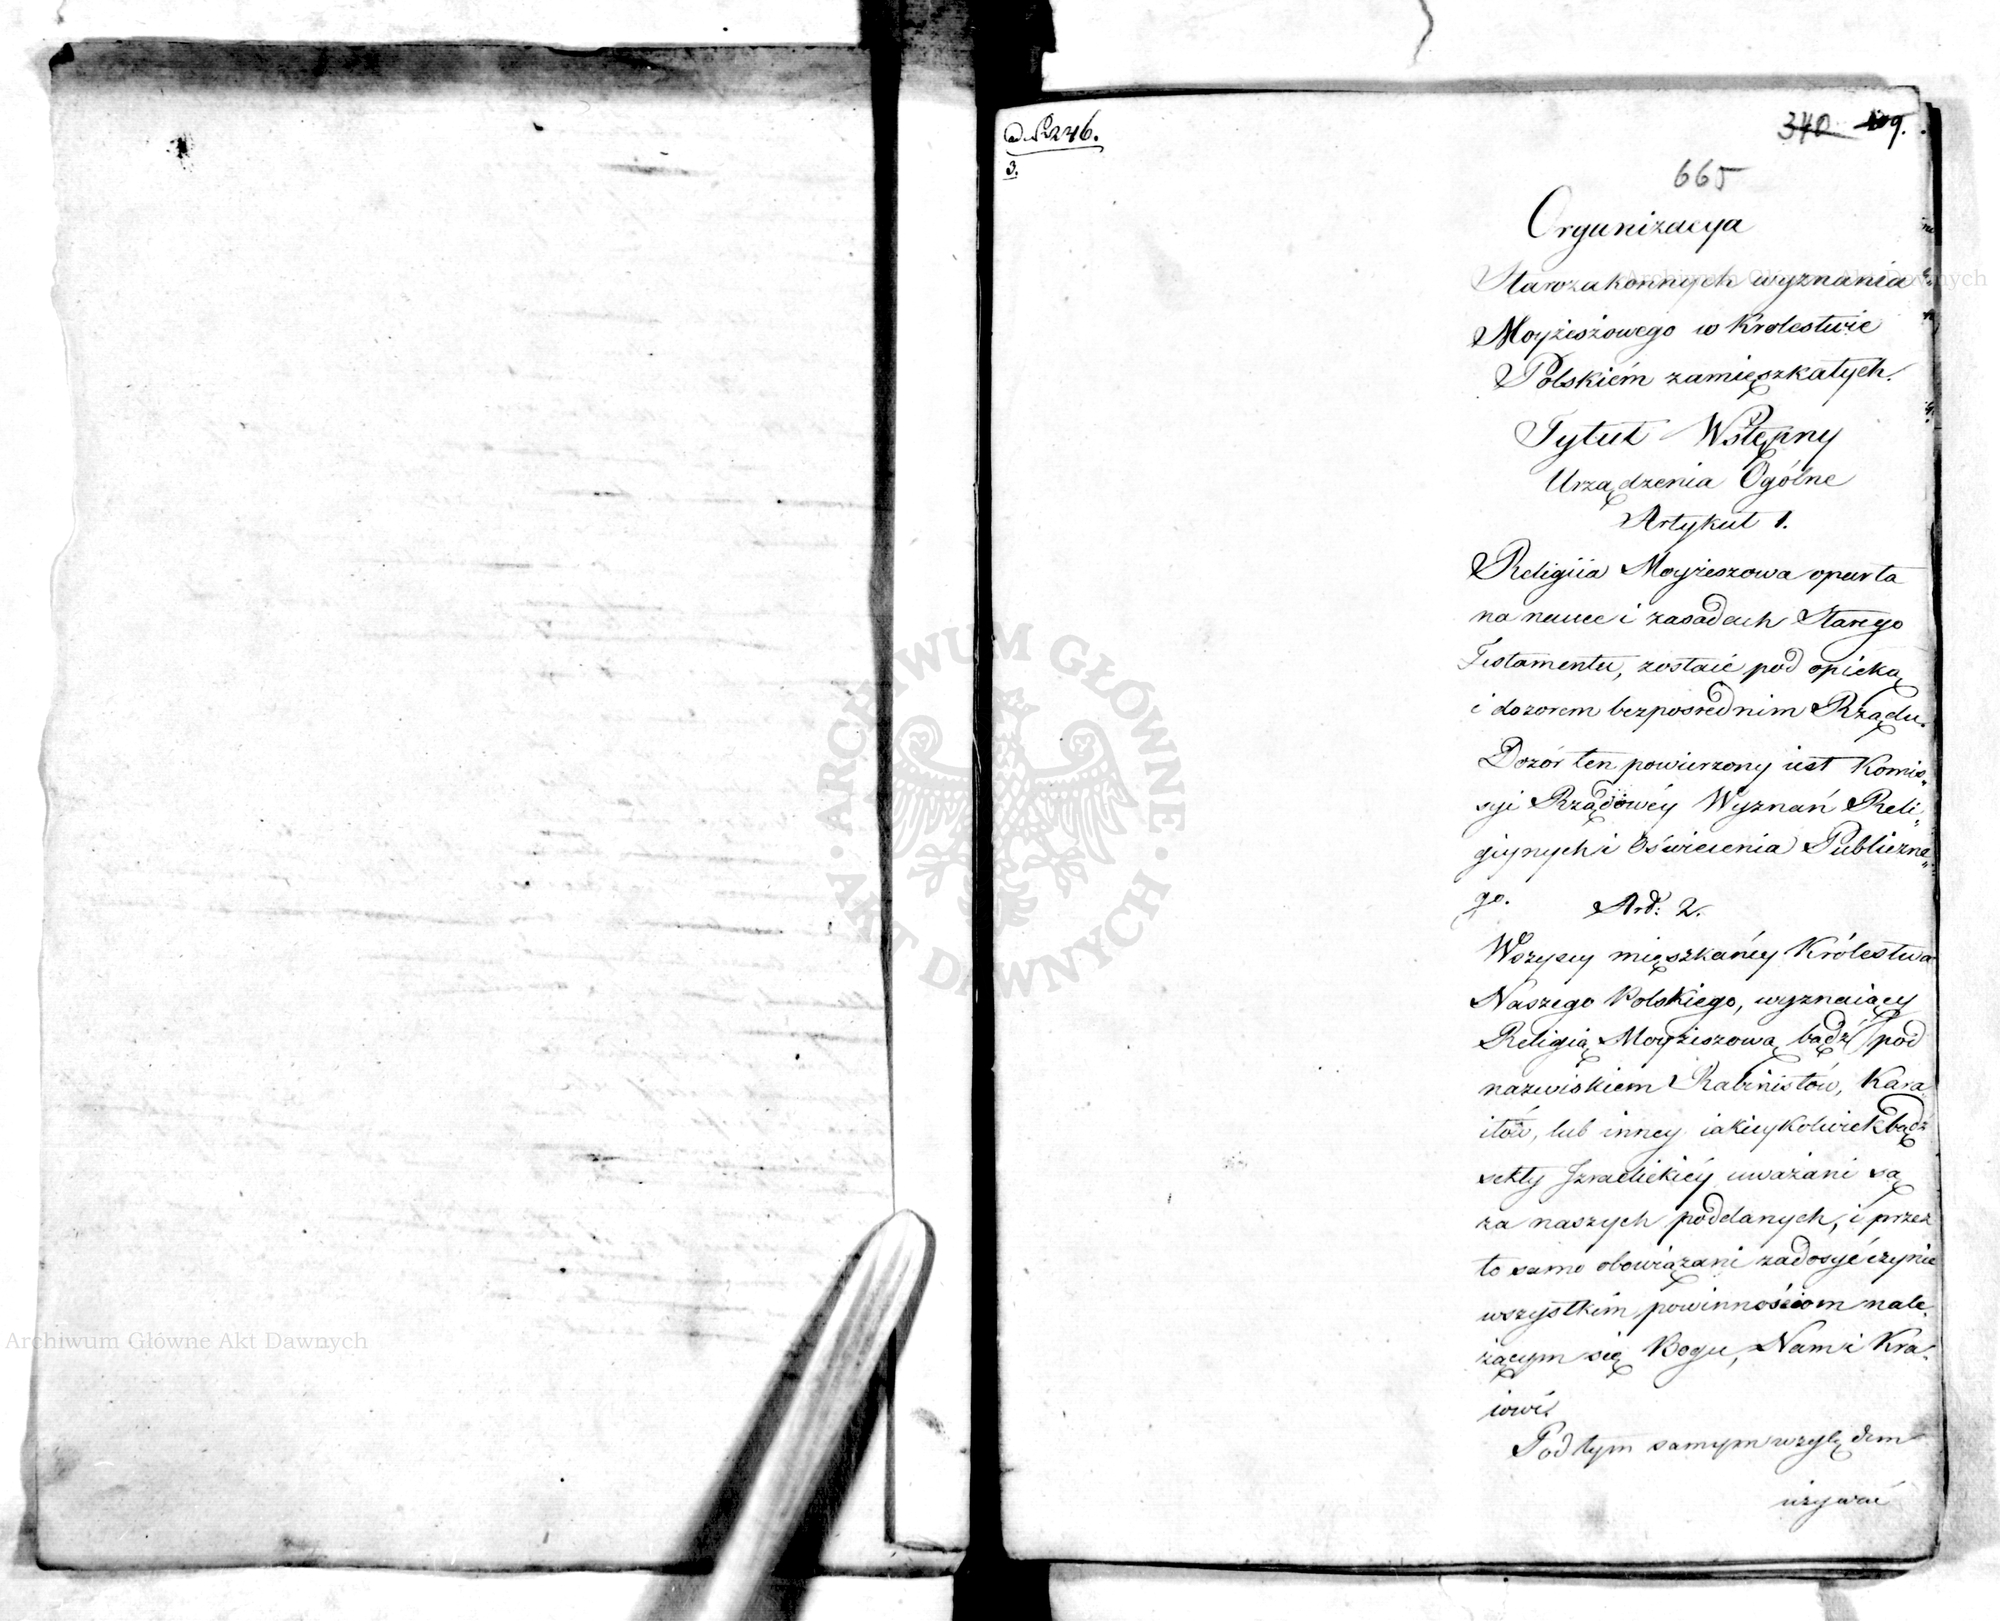 ad N 246.
3.
340 109.
665
Organizacya
Starozakonnych wyznania
Moyżeszowego w Krolestwie
Polskiém zamięszkałych.
Tytuł Wstępny
Urządzenia Ogólne
Artykuł 1.
Religiia Moyżeszowa oparta
na nauce i zasadach Starego
Testamentu, zostaie pod opieką
i dozorem bezpośrednim Rządu.
Dozór ten powierzony iest Komis„
syi Rządowéy Wyznań Reli„
giynych i Oświecenia Publiczne„
go.
Art: 2.
Wszyscy mięszkańcy Królestwa
Naszego Polskiego, wyznaiący
Religią Moyżeszową bądź pod
nazwiskiem Rabinistów, Kara„
itów, lub inney iakieykolwiek bądź
sekty Izraelickiéy uważani są
za naszych poddanych, i przez
to samo obowiązani zadosyć czynić
wszystkim powinnościom nale„
żącym się Bogu, Nam i Kra„
iowi.
Pod tym samym względem
używać
Archiwum Główne Akt Dawnych
ARCHIWUM GŁÓWNE
AKT DAWNYCH
Archiwum Główne Akt Dawnych